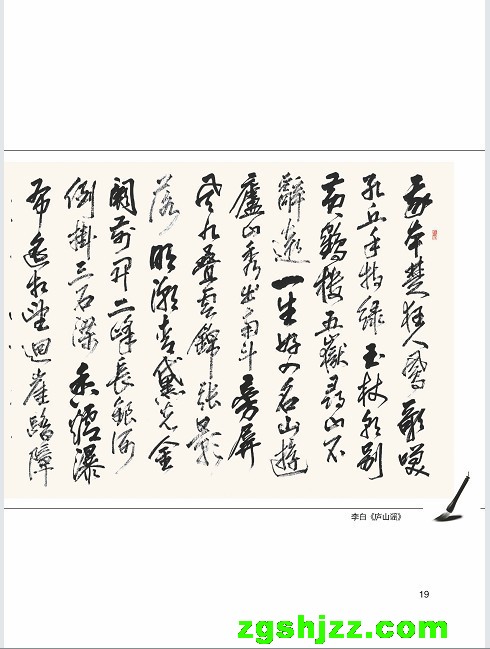 我本楚狂人鳳歌笑
孔丘手持綠玉杖朝別
黃鶴樓五嶽尋山不
辭遠一生好入名山遊
廬山秀出南斗旁屏
風九疊雲錦張影
落明湖青黛光金
闕前開二峰長銀河
倒掛三石梁香爐瀑
布遙相望迴崖障
李白《庐山谣》
19
zgshjzz.com